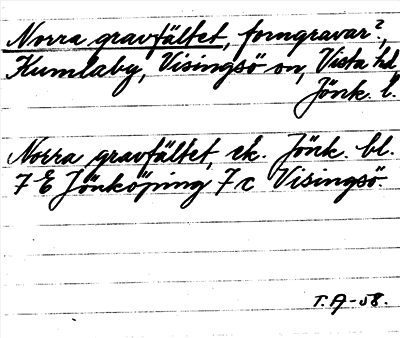 Norra gravfältet, forngravar?,
Kumlaby, Visingsö sn, Vista hd
Jönk. l.
Norra gravfältet, ek. Jönk. bl.
7 E Jönköping 7 c Visingsö.
T. A-58.